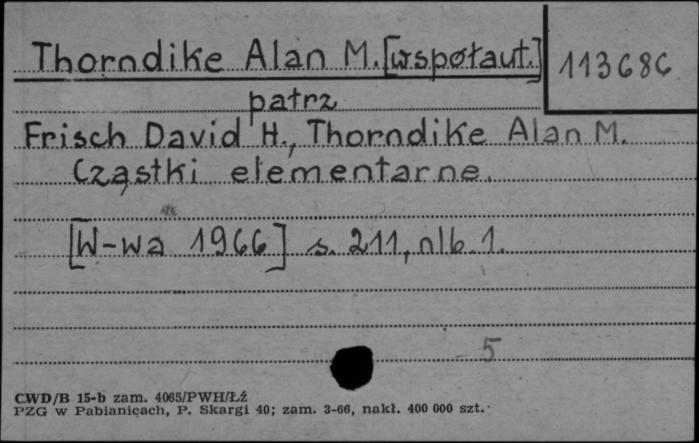 Thorndike Alan M. [współaut.]
113686
patrz
Frisch David H., Thorndike Alan M.
Cząstki elementarne.
[W-wa 1966] s. 211, nlb. 1.
5
CWD/B 15-b zam. 4065/PWH/Łź
PZG w Pabianicach, P. Skargi 40; zam. 3-66, nakł. 400 000 szt.